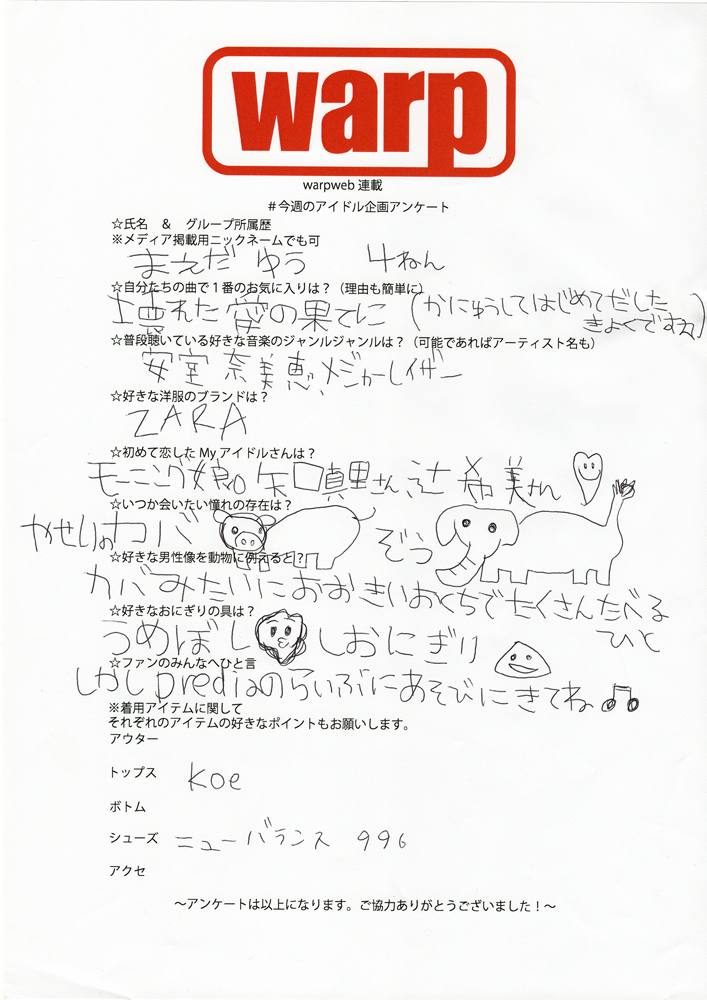 warp
warpweb 連載
＃今週のアイドル企画アンケート
☆氏名　＆　グループ所属歴
※メディア掲載用ニックネームでも可
まえだ ゆう　4ねん
☆自分たちの曲で１番のお気に入りは？（理由も簡単に）
壊れた愛の果てに（かにゅうしてはじめてだした
きょくですね）
☆普段聴いている好きな音楽のジャンルジャンルは？（可能であればアーティスト名も）
安室奈美恵、メジャーレイザー
☆好きな洋服のブランドは？
ZARA
☆初めて恋した My アイドルさんは？
モーニング娘。矢口真里さん、辻 希美さん
☆いつか会いたい憧れの存在は？
やせいのカバ　ぞう
☆好きな男性像を動物に例えると？
カバみたいにおおきいおくちでたくさんたべる
ひと
☆好きなおにぎりの具は？
うめぼし　しおにぎり
☆ファンのみんなへひと言
しかし prediaのらいぶにあそびにきてね♫
※着用アイテムに関して
それぞれのアイテムの好きなポイントもお願いします。
アウター
トップス　koe
ボトム
シューズ　ニューバランス 996
アクセ
～アンケートは以上になります。ご協力ありがとうございました！～